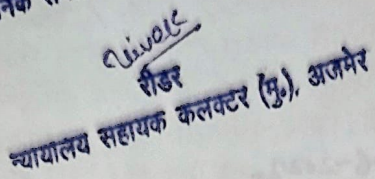 रीडर
न्यायालय सहायक कलक्टर (मु.), अजमेर